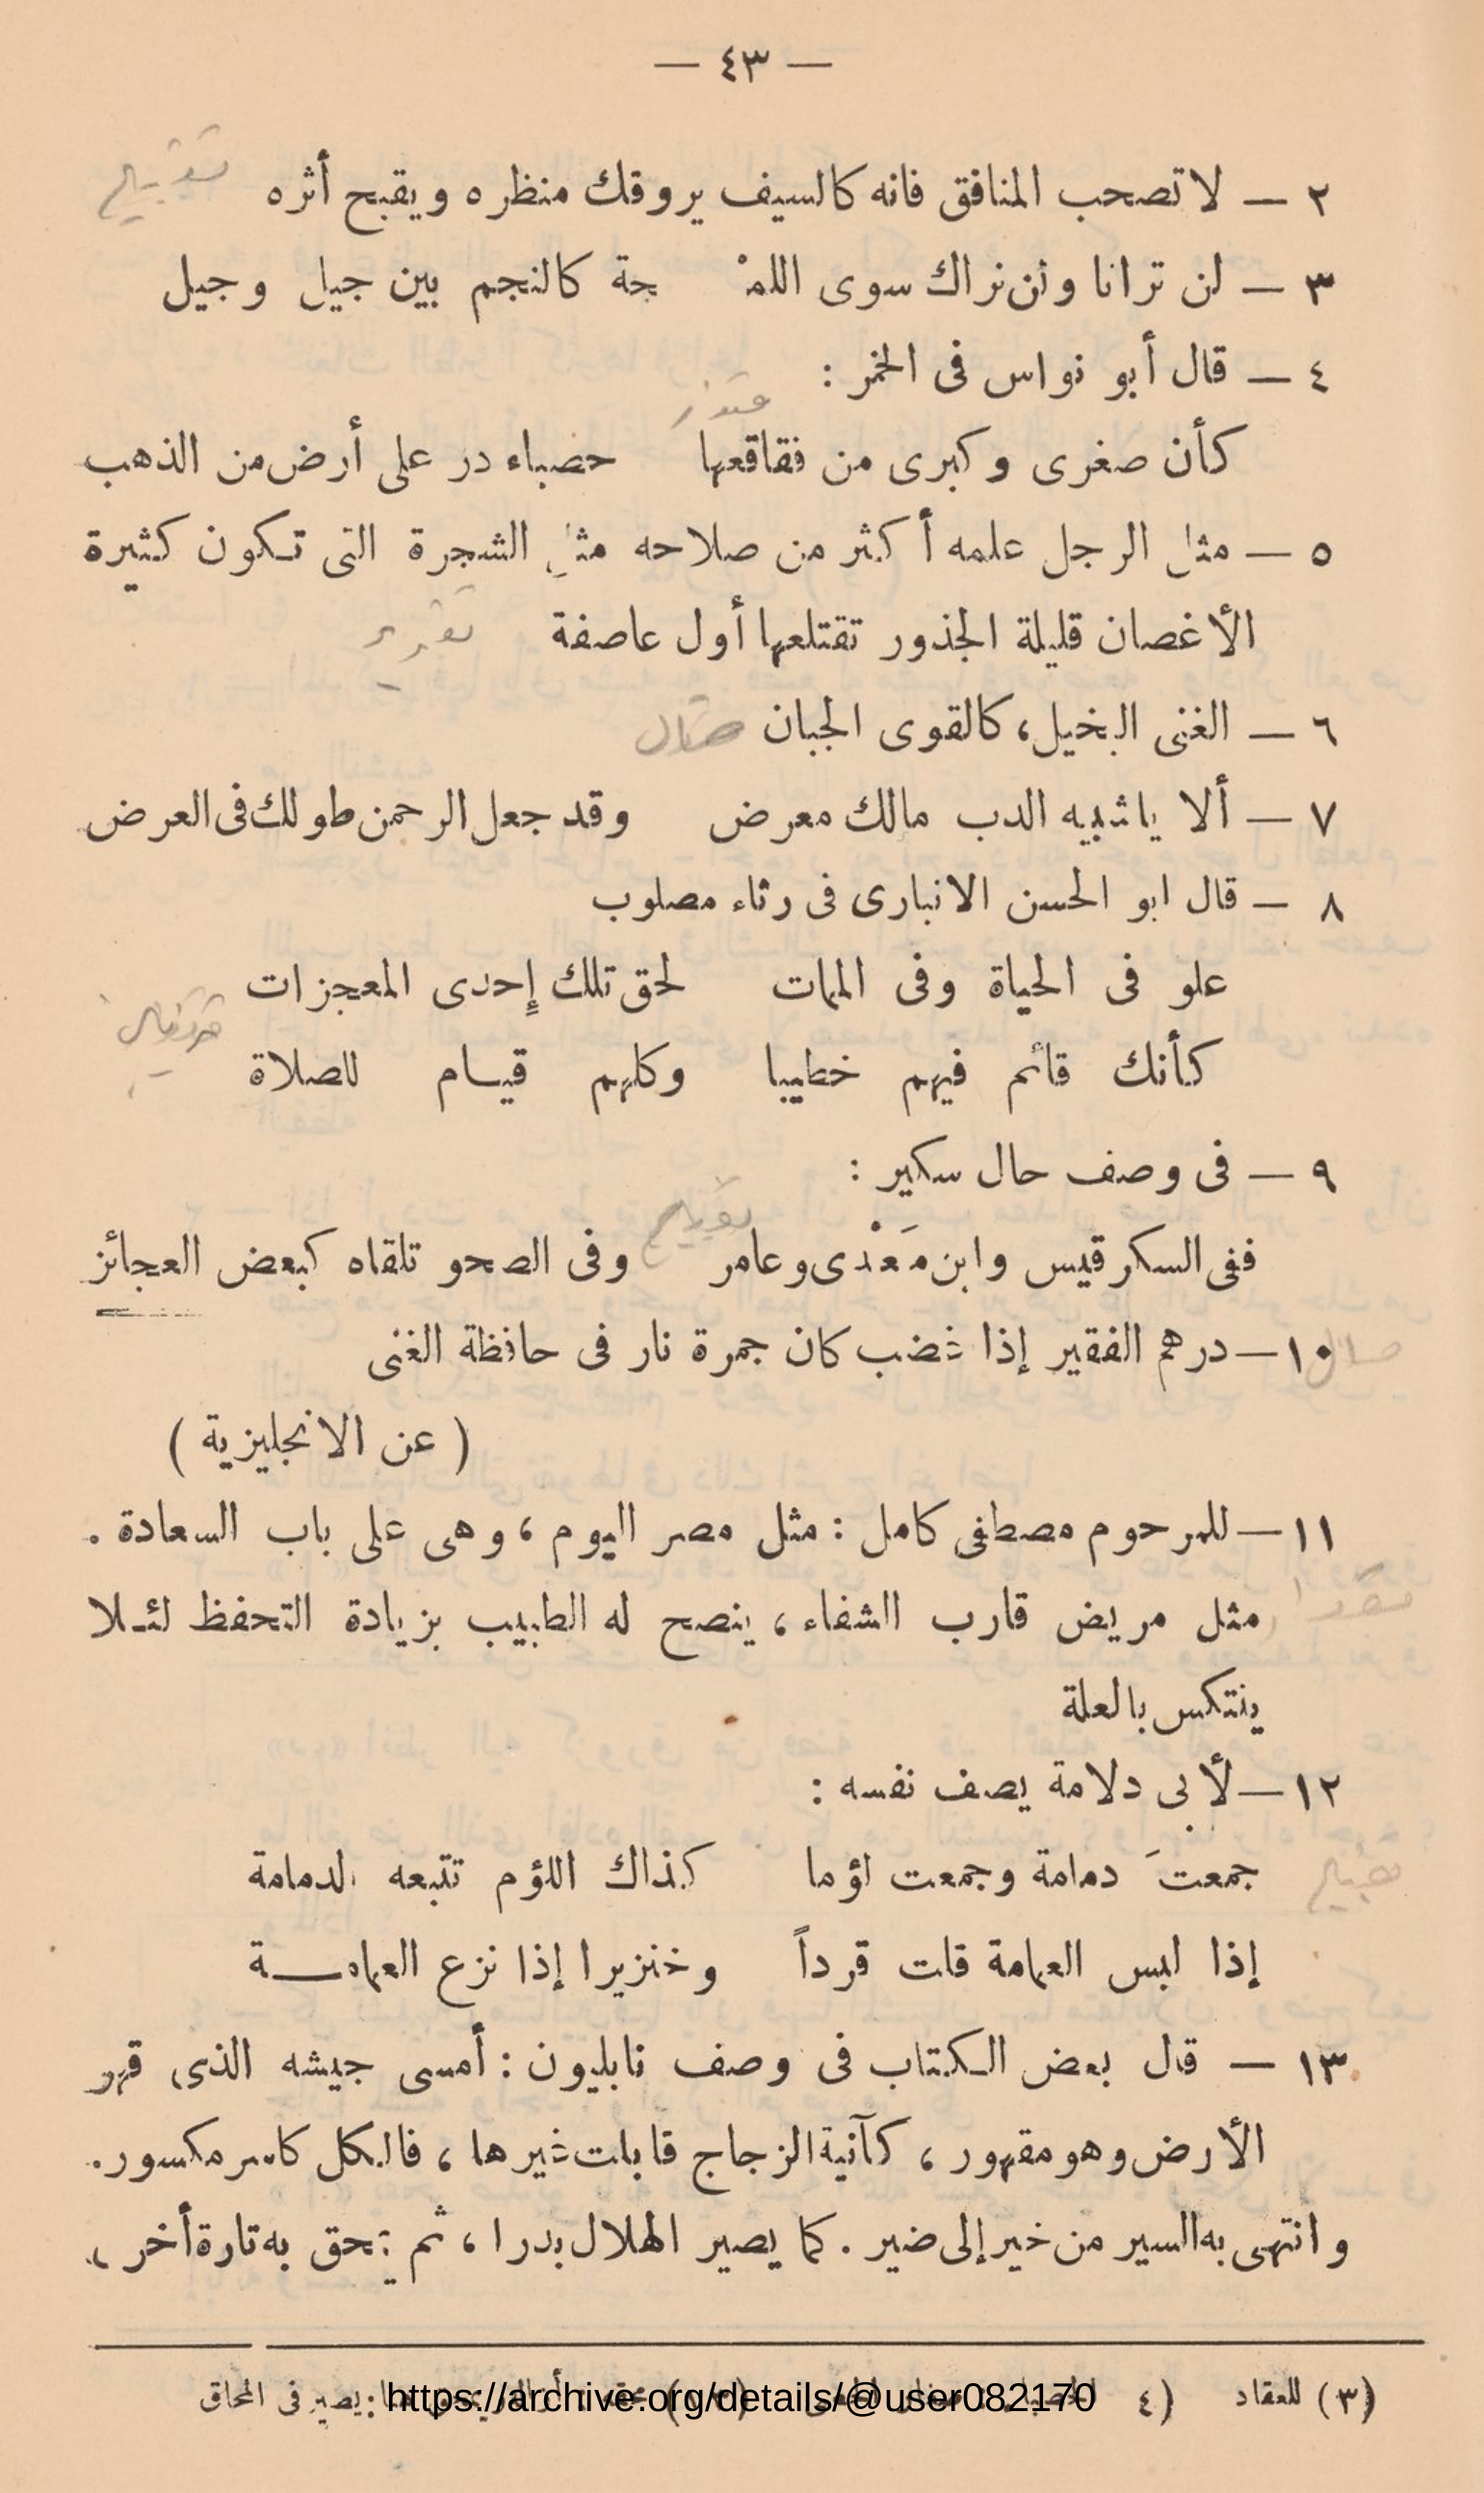 — ٤٣ —
٢ — لا تصحب المنافق فانه كالسيف يروقك منظره ويقبح أثره
تقبيح
٣ — لن ترانا ولن نراك سوى اللمْـ حة كالنجم بين جيل وجيل
٤ — قال أبو نواس فى الخمر :
كأن صغرى وكبرى من فقاقعها حصباء در على أرض من الذهب
٥ — مثل الرجل علمه أكثر من صلاحه مثل الشجرة التى تكون كثيرة
الأغصان قليلة الجذور تقتلعها أول عاصفة
تقرير
٦ — الغنى البخيل، كالقوى الجبان
٧ — ألا ياشبيه الدب مالك معرض وقد جعل الرحمن طولك فى العرض
٨ — قال ابو الحسن الانبارى فى رثاء مصلوب
علو فى الحياة وفى الممات لحق تلك إحدى المعجزات
كأنك قائم فيهم خطيبا وكلهم قيام للصلاة
٩ — فى وصف حال سكير :
ففى السكر قيس وابن مَعْدى وعامر وفى الصحو تلقاه كبعض العجائز
١٠ — درهم الفقير إذا غضب كان جمرة نار فى حافظة الغنى
( عن الانجليزية )
١١ — للمرحوم مصطفى كامل : مثل مصر اليوم ، وهى على باب السعادة .
مثل مريض قارب الشفاء ، ينصح له الطبيب بزيادة التحفظ لئلا
ينتكس بالعلة
١٢ — لأبى دلامة يصف نفسه :
جمعتَ دمامة وجمعت لؤما كذاك اللؤم تتبعه الدمامة
إذا لبس العمامة قلت قرداً وخنزيرا إذا نزع العمامة
١٣ — قال بعض الكتاب فى وصف نابليون : أمسى جيشه الذى قهر
الأرض وهو مقهور ، كآنية الزجاج قابلت غيرها ، فالكل كاسر مكسور .
وانتهى به السير من خير إلى ضير . كما يصير الهلال بدرا ، ثم يمحق به تارة أخرى
(٣) للعقاد (٤ يصير فى المحاق
https://archive.org/details/@user082170